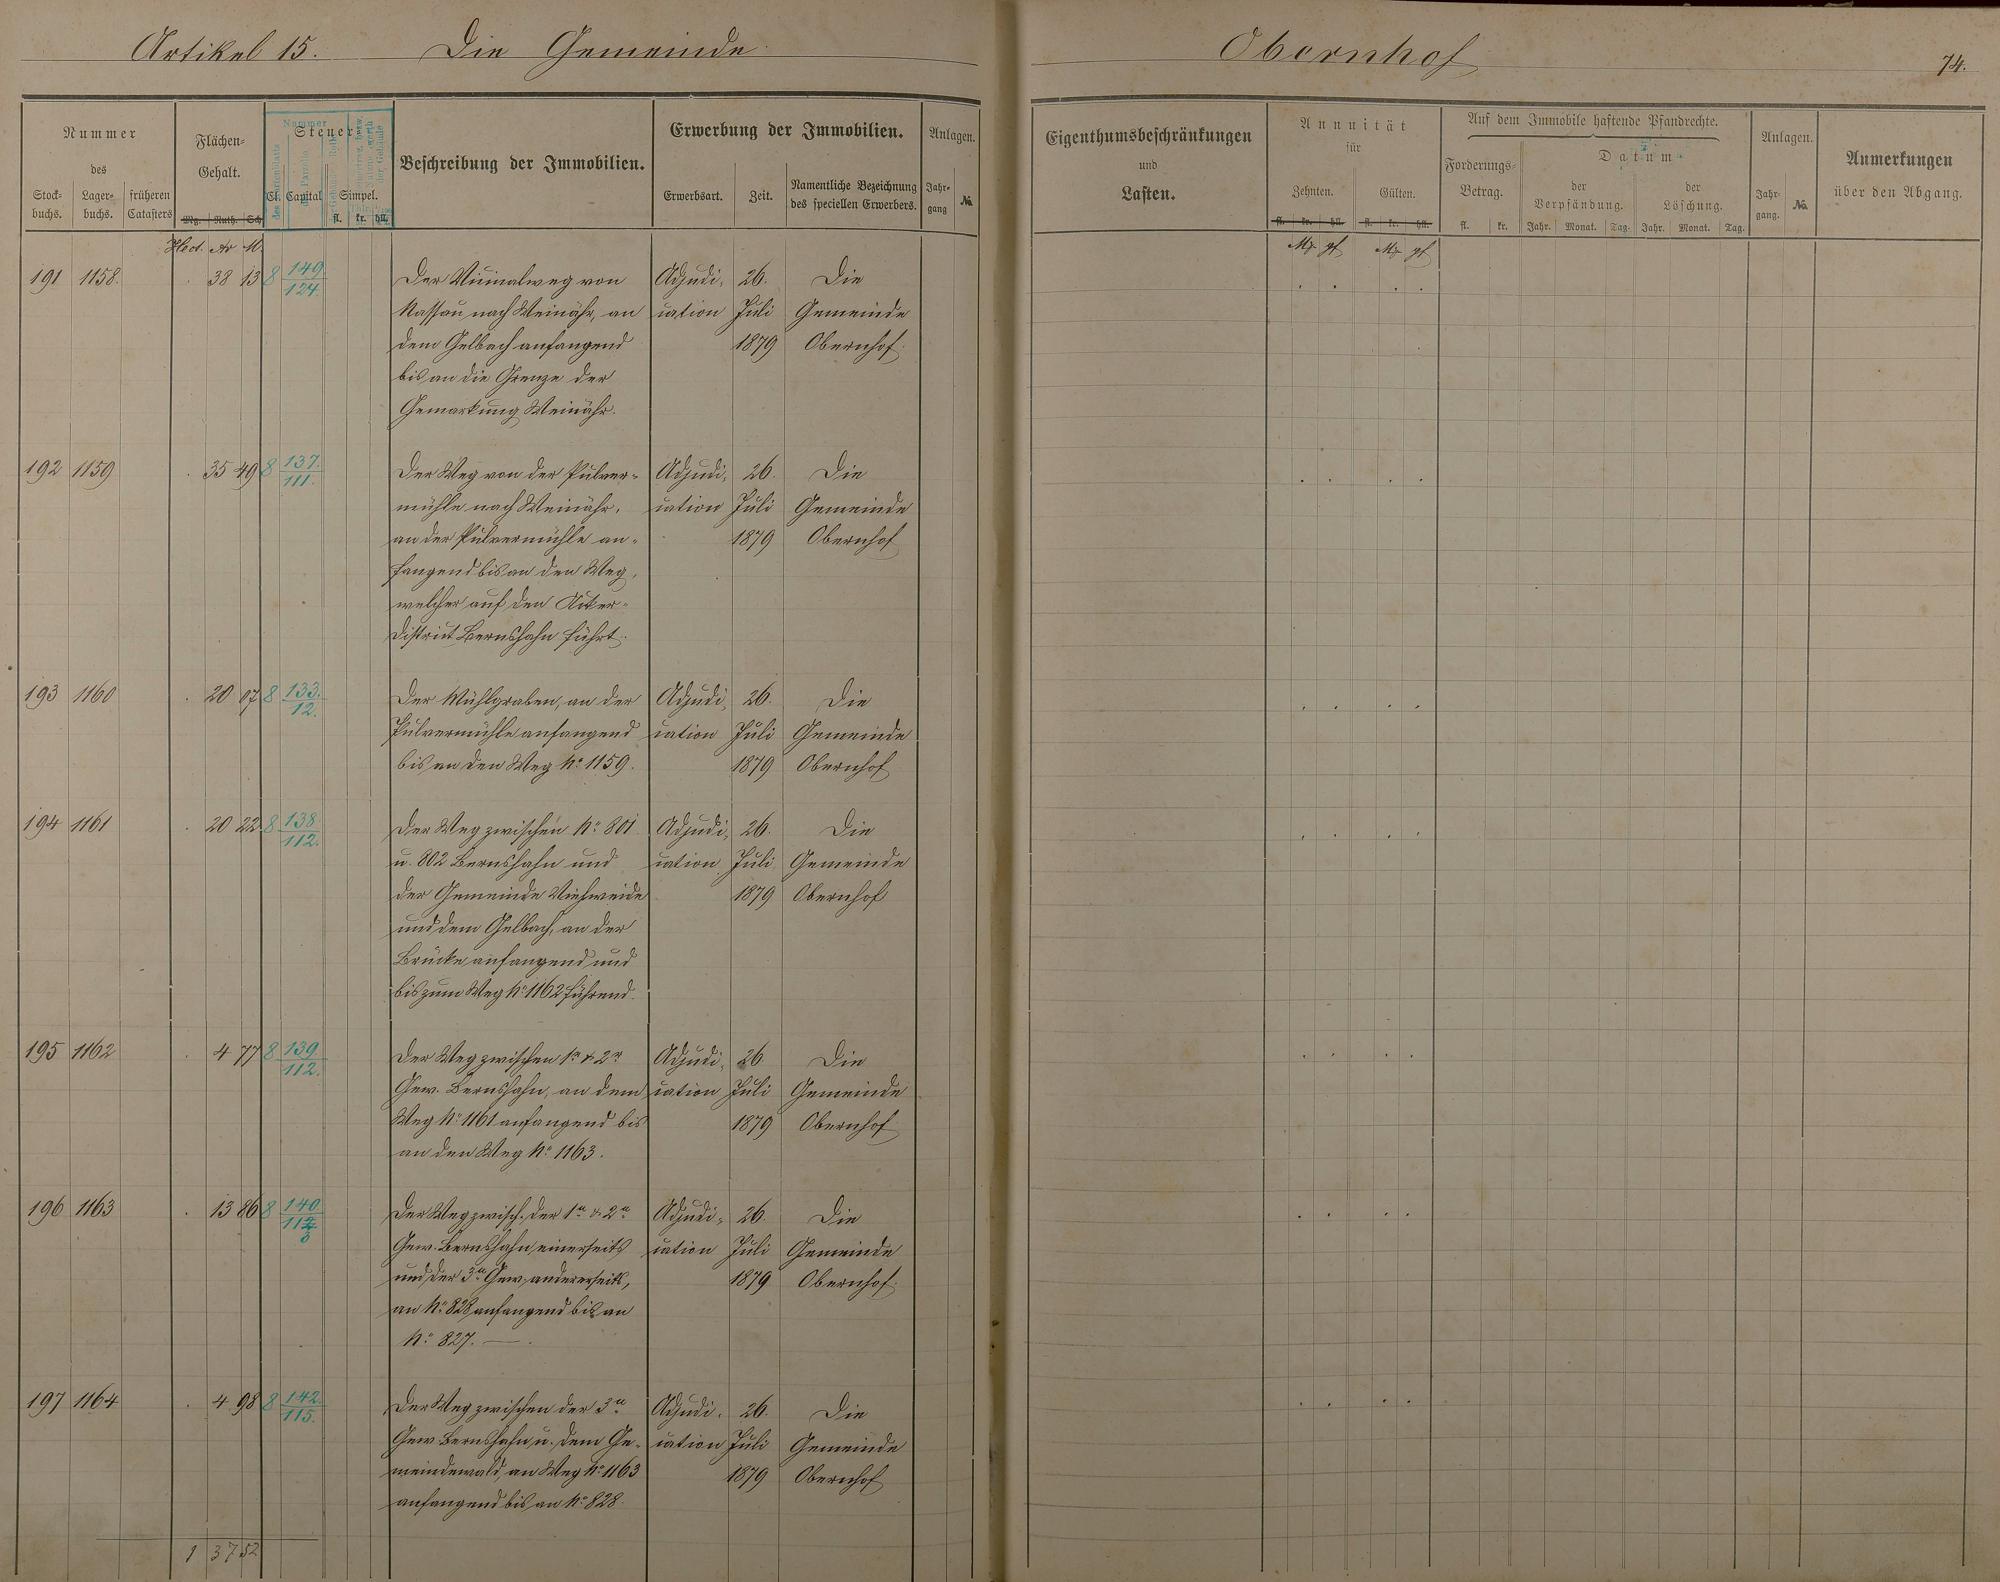 Artikel 15. Die Gemeinde Obernhof 74.
Nummer
des
Stock-
buchs.
Lager-
buchs.
früheren
Catasters
Flächen-
Gehalt.
Mg. Ruth. Sch
Hect. Ar M.
Steuer
Cl. Capital Simpel.
fl. kr. hll.
Nummer
des Kartenblatts
der Parzelle
Beschreibung der Immobilien.
Erwerbung der Immobilien.
Erwerbsart. Zeit.
Namentliche Bezeichnung
des speciellen Erwerbers.
Anlagen.
Jahr-
gang
No.
Eigenthumsbeschränkungen
und
Lasten.
Annuität
für
Zehnten. Gülten.
fl. kr. hll. fl. kr. hll.
Mk. Pf. Mk. Pf.
Auf dem Immobile haftende Pfandrechte.
Forderungs-
Betrag.
fl. kr.
Datum
der
Verpfändung.
Jahr. Monat. Tag.
der
Löschung.
Jahr. Monat. Tag.
Anlagen.
Jahr-
gang.
No.
Anmerkungen
über den Abgang.
191 1158. 38 13 8 149/124. Der Vicinalweg von Adjudi- 26. Die
Nassau nach Weinähr, an cation Juli Gemeinde
dem Gelbach anfangend 1879 Obernhof.
bis an die Grenze der
Gemarkung Weinähr.
192 1159 35 49 8 137./111. Der Weg von der Pulver- Adjudi- 26. Die
mühle nach Weinähr, cation Juli Gemeinde
an der Pulvermühle an- 1879 Obernhof
fangend bis an den Weg,
welcher auf den Acker-
district Bernshahn führt.
193 1160 20 07 8 133./12. Der Mühlgraben, an der Adjudi- 26. Die
Pulvermühle anfangend cation Juli Gemeinde
bis an den Weg No. 1159. 1879 Obernhof
194 1161 20 22 8 138/112. Der Weg zwischen No. 801 Adjudi- 26. Die
u. 802 Bernshahn und cation Juli Gemeinde
der Gemeinde Viehweide 1879 Obernhof
und dem Gelbach, an der
Brücke anfangend und
bis zum Weg No. 1162 führend.
195 1162 4 77 8 139/112. Der Weg zwischen 1r & 2r Adjudi- 26 Die
Gew. Bernshahn, an dem cation Juli Gemeinde
Weg No. 1161 anfangend bis 1879 Obernhof
an den Weg No. 1163.
196 1163 13 86 8 140/112/3 Der Weg zwisch. der 1n & 2n Adjudi- 26. Die
Gew. Bernshahn einerseits cation Juli Gemeinde
und der 3n Gew. andererseits, 1879 Obernhof.
an No. 828 anfangend bis an
No. 827. —.
197 1164 4 98 8 142/115. Der Weg zwischen der 3n Adjudi- 26. Die
Gew. Bernshahn u. dem Ge- cation Juli Gemeinde
meindewald, an Weg No. 1163 1879 Obernhof
anfangend bis an No. 828.
1 37 52